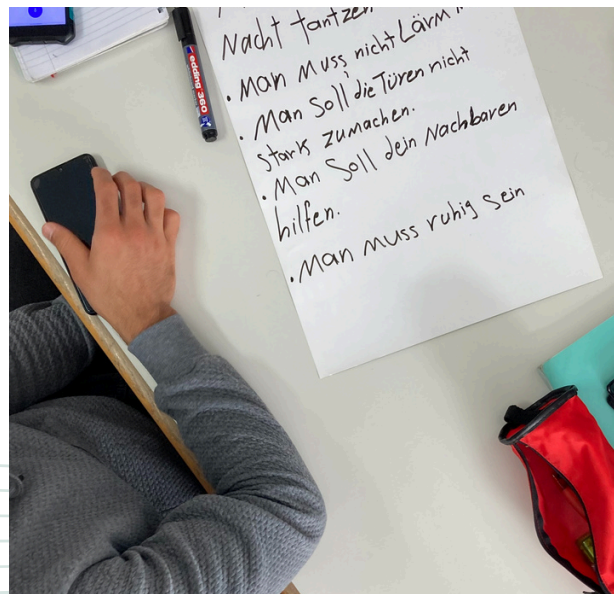 Nacht tantzen
• Man Muss nicht Lärm
• Man Soll die Türen nicht
stark zumachen.
• Man Soll dein Nachbaren
hilfen.
• Man muss ruhig sein
edding 360